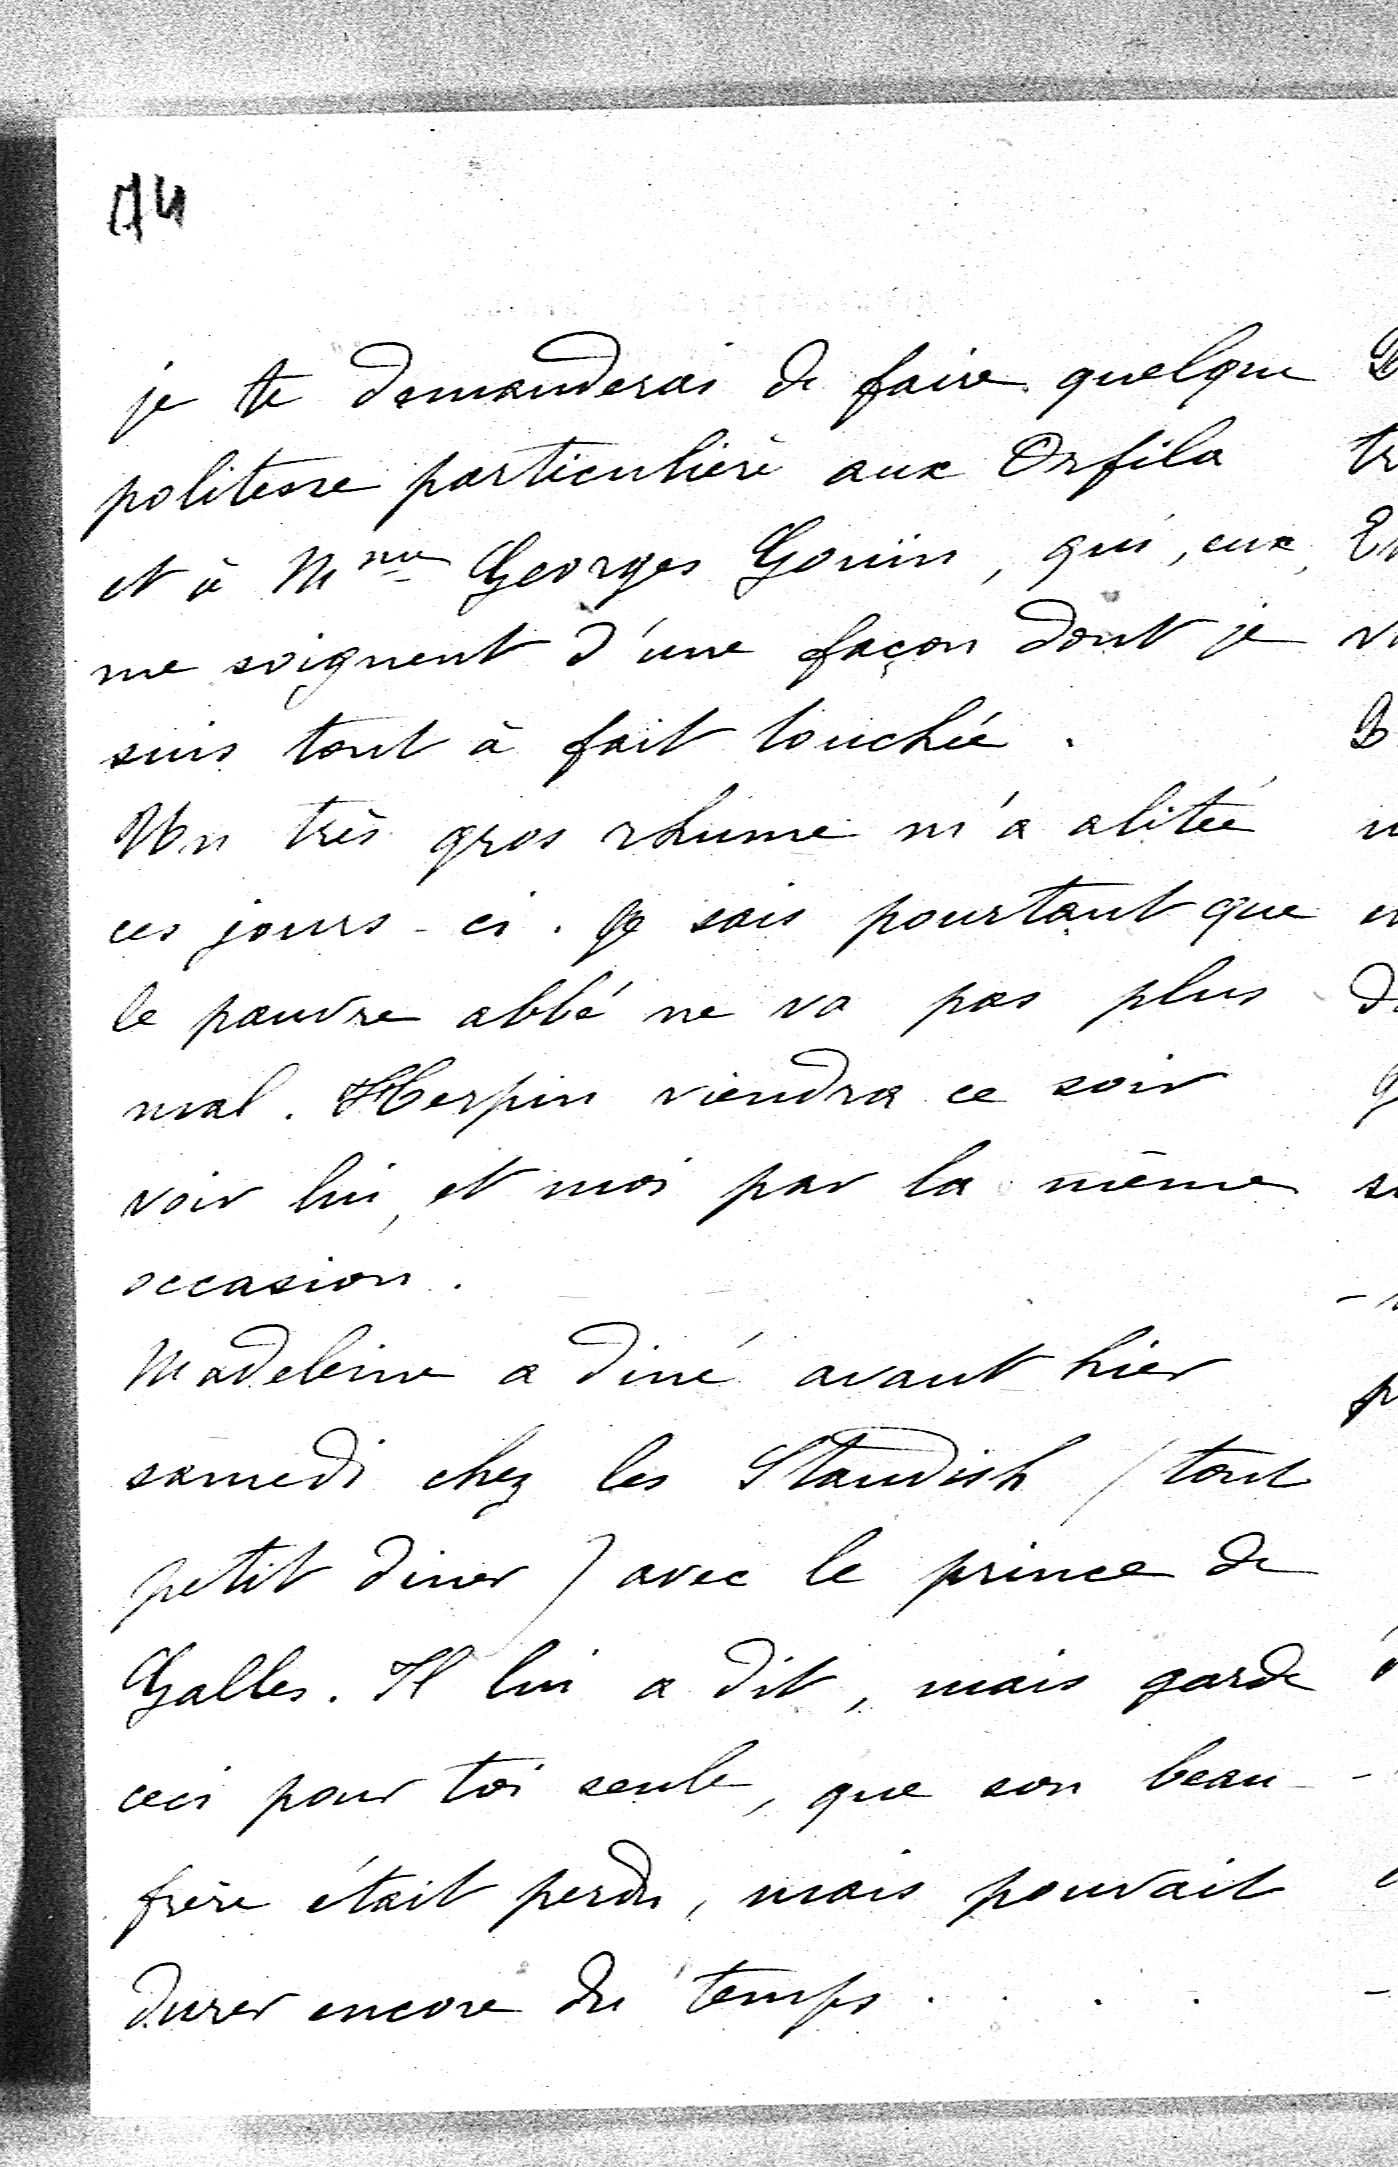 je te demanderai de faire quelque
politesse particulière aux Orfila
et à Mme Georges Gouin, qui, eux,
me soignent d'une façon dont je
suis tout à fait touchée.
Un très gros rhume m'a alitée
ces jours-ci. Je sais pourtant que
le pauvre abbé ne va pas plus
mal. Herpin viendra ce soir
voir lui, et moi par la même
occasion.
Madeleine a diné avant hier
samedi chez les Standish (tout
petit diner) avec le prince de
Galles. Il lui a dit, mais garde
ceci pour toi seule, que son beau-
frère était perdu, mais pouvait
durer encore du temps . . . .